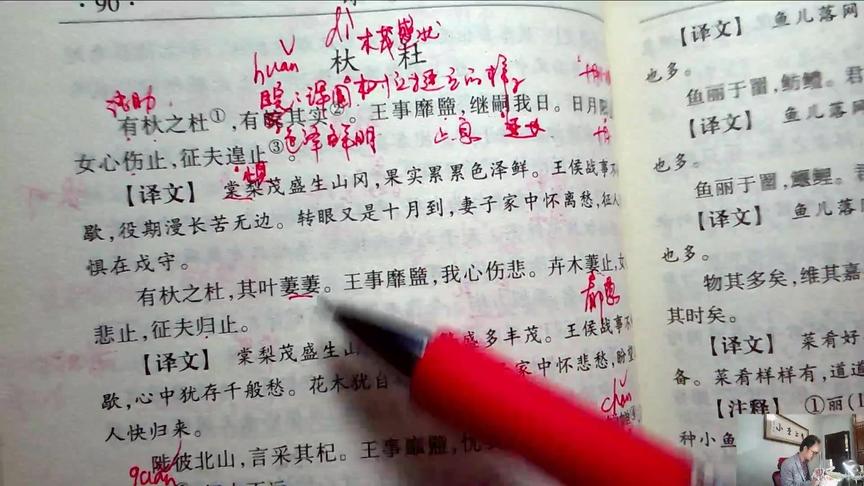 ·90·
dì
木茂盛状
杕 杜
huǎn
睆：浑圆
树立挺立的样子
语助
有杕之杜①，有睆其实②。王事靡盬，继嗣我日。日月
色泽鲜明
止息
女心伤止，征夫遑止③。
【译文】 棠梨茂盛生山冈，果实累累色泽鲜。王侯战事
歇，役期漫长苦无边。转眼又是十月到，妻子家中怀离愁，征
惧在戍守。
有杕之杜，其叶萋萋。王事靡盬，我心伤悲。卉木萋止，女
悲止，征夫归止。
【译文】 棠梨茂盛生山 盛多丰茂。王侯战事
歇，心中犹存千般愁。花木犹自 家中怀悲愁，盼望
人快归来。
chǎn
陟彼北山，言采其杞。王事靡盬，忧
【译文】 鱼儿落网
也多。
鱼丽于罶，鲂鳢。君
【译文】 鱼儿落网
也多。
鱼丽于罶，鰋鲤。君
【译文】 鱼儿落网
也多。
物其多矣，维其嘉
其时矣。
【译文】 菜肴好
备。菜肴样样有，道道
【注释】 ①丽(l
种小鱼